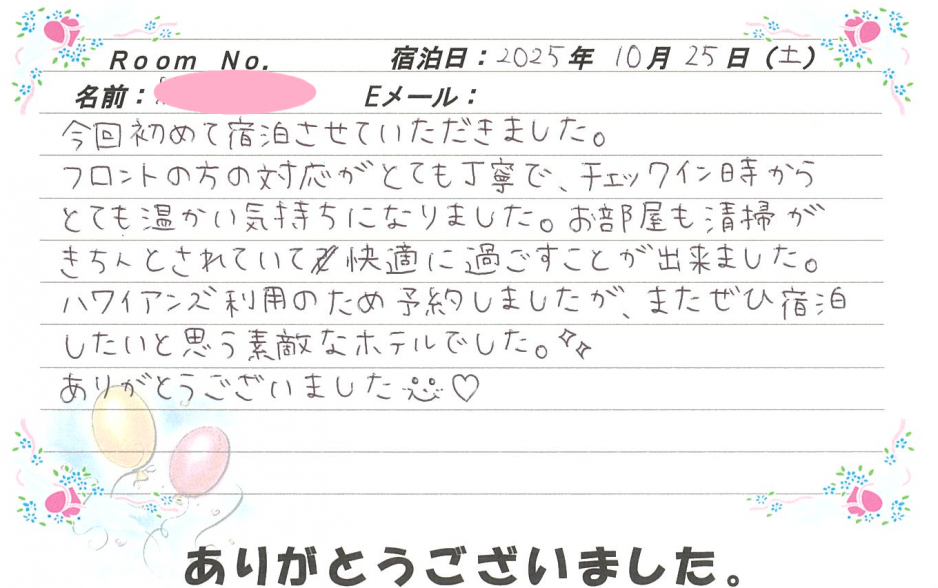 Room No. 宿泊日：2025年 10月 25日（土）
名前： Eメール：
今回初めて宿泊させていただきました。
フロントの方の対応がとても丁寧で、チェックイン時から
とても温かい気持ちになりました。お部屋も清掃が
きちんとされていて快適に過ごすことが出来ました。
ハワイアンズ利用のため予約しましたが、またぜひ宿泊
したいと思う素敵なホテルでした。
ありがとうございました♡
ありがとうございました。